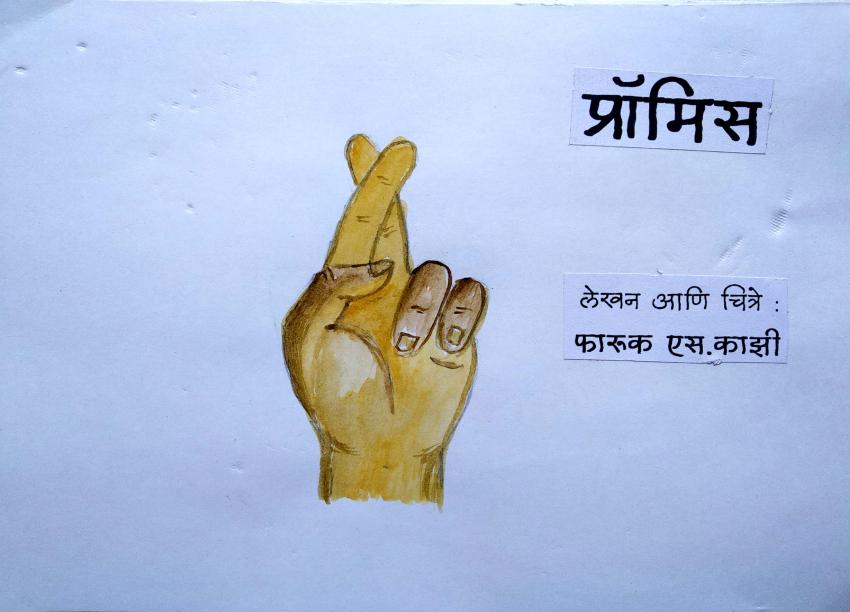 प्रॉमिस
लेखन आणि चित्रे :
फारूक एस.काझी